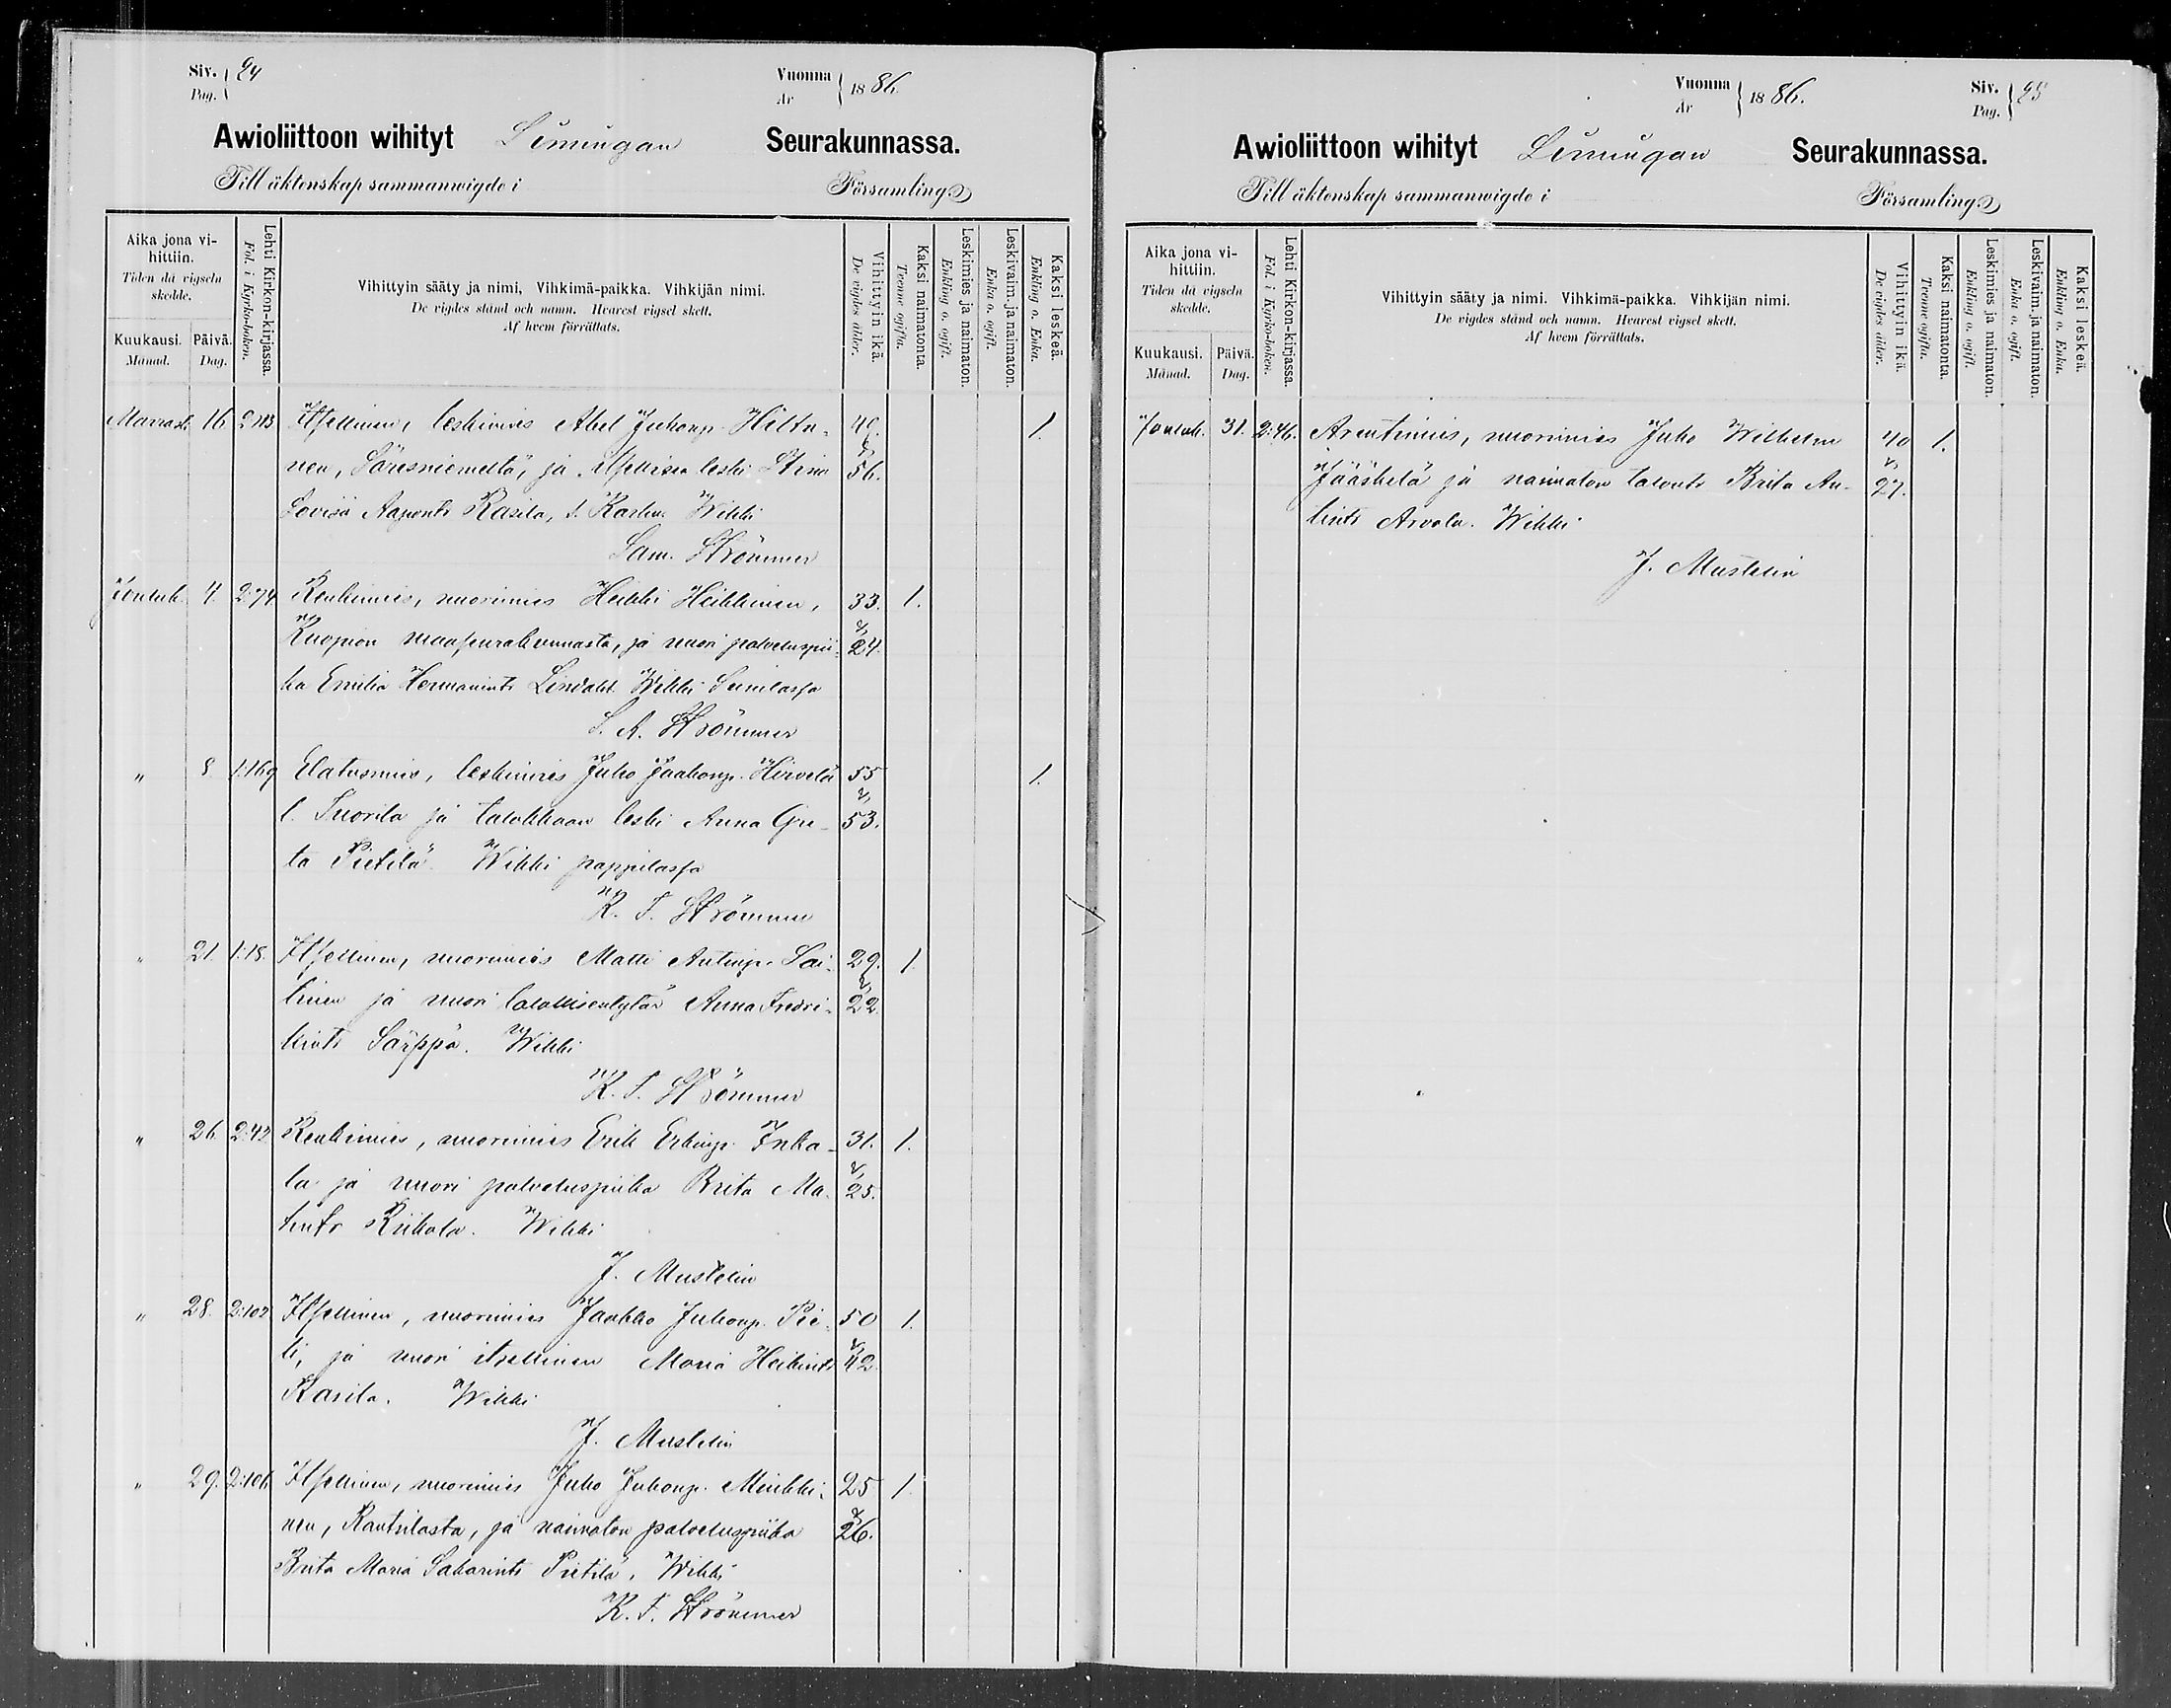 Siv. 24
Pag.
Vuonna 1886.
År
Awioliittoon wihityt Limingan Seurakunnassa.
Till äktenskap sammanwigde i Församling
Aika jona vihittiin.
Tiden då vigseln skedde.
Kuukausi. Päivä.
Månad. Dag.
Lehti Kirkon-kirjassa.
Fol. i Kyrko-boken.
Vihittyin sääty ja nimi, Vihkimä-paikka. Vihkijän nimi.
De vigdes stånd och namn. Hvarest vigsel skett.
Af hvem förrättats.
Vihittyin ikä.
De vigdes ålder.
Kaksi naimatonta.
Tvenne ogifta.
Leskimies ja naimaton.
Enkling o. ogift.
Leskivaim. ja naimaton.
Enka o. ogift.
Kaksi leskeä.
Enkling o. Enka.
Marrask. 16 2:113 Itsellinen, leskimies Abel Juhonp. Hiltu- 40. 1.
nen, Säresniemeltä, ja itsellisen leski Stina 56.
Lovisa Raxila, Wihki
Sam. Strömmer
Jouluk. 4. 2:74 Renkimies, nuorimies Heikki Heikkinen, 33. 1.
Kuopion maaseurakunnasta, ja nuori palveluspii- 24.
ka Emilia Hermanint. Lindahl. Wihki
S. A. Strömmer
" 8. 1:169 Elatusmies, leskimies Juho Jaakonp. Hirvelä 55 1.
l. Tuorila ja talokkaan leski Anna Gre- 53.
ta Pietilä. Wihki pappilassa
K. F. Strömmer
" 21. 1:18. Itsellinen, nuorimies Matti Antinp. Lai- 29. 1.
tinen ja nuori talollisentytär Anna Fredri- 22.
kint. Särppä. Wihki
K. F. Strömmer
" 26. 2:42 Renkimies, nuorimies Erik Erkinp. Inka- 31. 1.
la ja nuori palveluspiika Brita Ma- 25.
tint. Riikola. Wihki
J. Mustelin
" 28. 2:102 Itsellinen, nuorimies Jaakko Juhonp. Pie- 50 1.
ti, ja nuori itsellinen Maria Heikint. 42.
Rasila. Wihki
J. Mustelin
" 29. 2:106 Itsellinen, nuorimies Juho Juhonp. Minkki- 25 1.
nen, Rantsilasta, ja naimaton palveluspiika 26.
Brita Maria Sakarint. Pietilä. Wihki
K. F. Strömmer
Vuonna 1886.
År
Siv. 25
Pag.
Awioliittoon wihityt Limingan Seurakunnassa.
Till äktenskap sammanwigde i Församling
Aika jona vihittiin.
Tiden då vigseln skedde.
Kuukausi. Päivä.
Månad. Dag.
Lehti Kirkon-kirjassa.
Fol. i Kyrko-boken.
Vihittyin sääty ja nimi. Vihkimä-paikka. Vihkijän nimi.
De vigdes stånd och namn. Hvarest vigsel skett.
Af hvem förrättats.
Vihittyin ikä.
De vigdes ålder.
Kaksi naimatonta.
Tvenne ogifta.
Leskimies ja naimaton.
Enkling o. ogift.
Leskivaim. ja naimaton.
Enka o. ogift.
Kaksi leskeä.
Enkling o. Enka.
Jouluk. 31. 2:46. Arentimies, nuorimies Juho Wilhelm 40 1.
Jääskelä ja naimaton talont. Brita An- 27.
tint. Arvola. Wihki
J. Mustelin